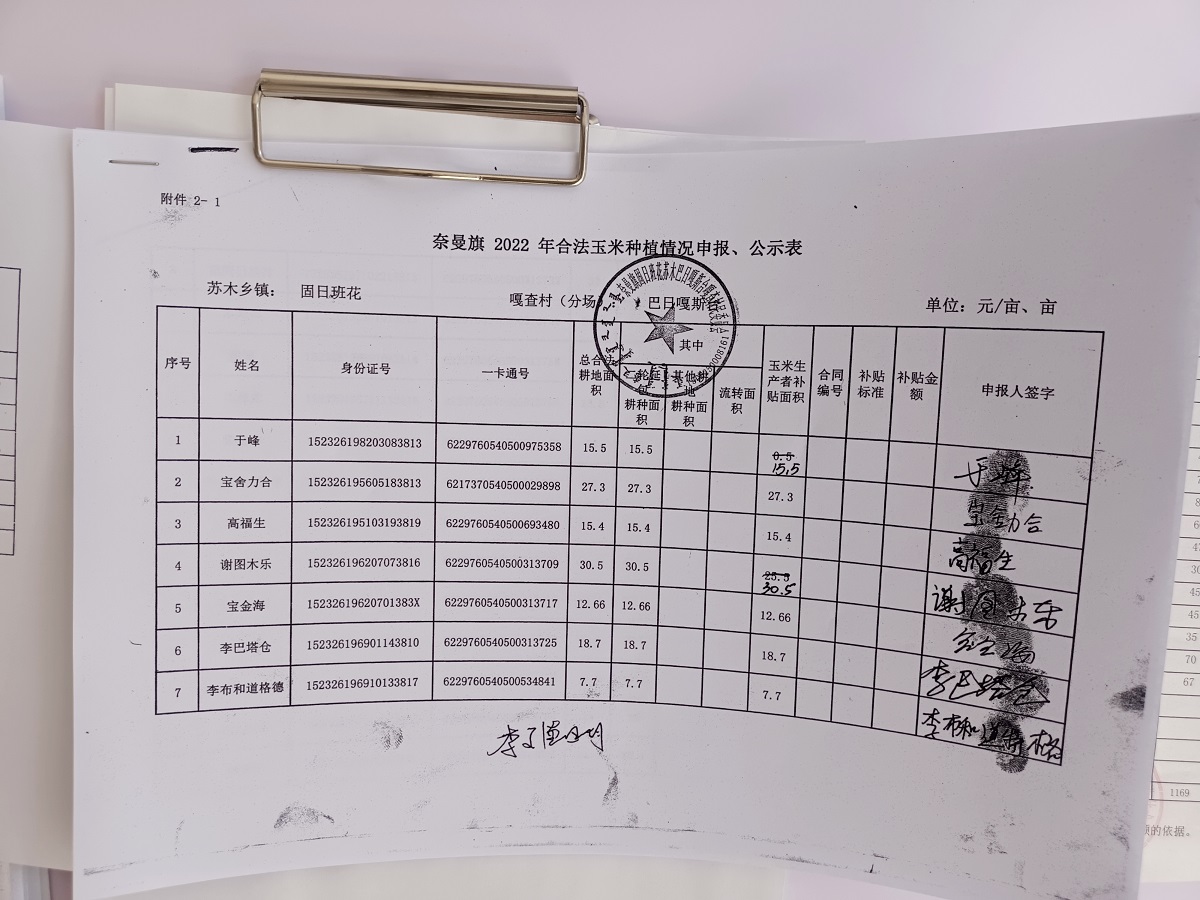 附件 2- 1
奈曼旗 2022 年合法玉米种植情况申报、公示表
苏木乡镇： 固日班花 嘎查村（分场） 巴日嘎斯 单位：元/亩、亩
序号 姓名 身份证号 一卡通号 总合法耕地面积 其中 玉米生产者补贴面积 合同编号 补贴标准 补贴金额 申报人签字
二轮延包耕种面积 其他耕地耕种面积 流转面积
1 于峰 152326198203083813 6229760540500975358 15.5 15.5 0.5 15.5 于峰
2 宝舍力合 152326195605183813 6217370540500029898 27.3 27.3 27.3
3 高福生 152326195103193819 6229760540500693480 15.4 15.4 15.4 高福生
4 谢图木乐 152326196207073816 6229760540500313709 30.5 30.5 25.5 30.5 谢图木乐
5 宝金海 15232619620701383X 6229760540500313717 12.66 12.66 12.66 宝金海
6 李巴塔仓 152326196901143810 6229760540500313725 18.7 18.7 18.7 李巴塔仓
7 李布和道格德 152326196910133817 6229760540500534841 7.7 7.7 7.7
1169
的依据。